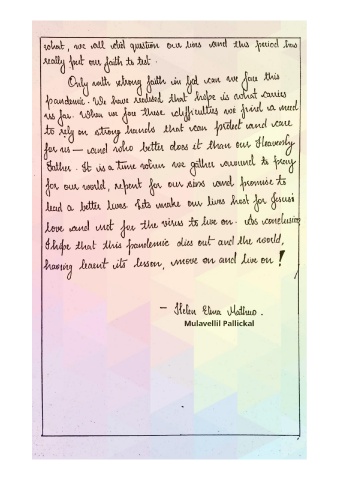 what, we all did question our lives and this period has
really put our faith to test.
Only with strong faith in God can we face this
pandemic. We have realised that hope is what carries
us far. When we face these difficulties we find a need
to rely on strong hands that can protect and care
for us — and who better does it than our Heavenly
Father. It is a time when we gather around to pray
for our world, repent for our sins and promise to
lead a better lives. Lets make our lives host for Jesus's
love and not for the virus to live on. As conclusion
I hope that this pandemic dies out and the world,
having learnt its lesson, move on and live on!
- Helen Elina Mathew.
Mulavellil Pallickal